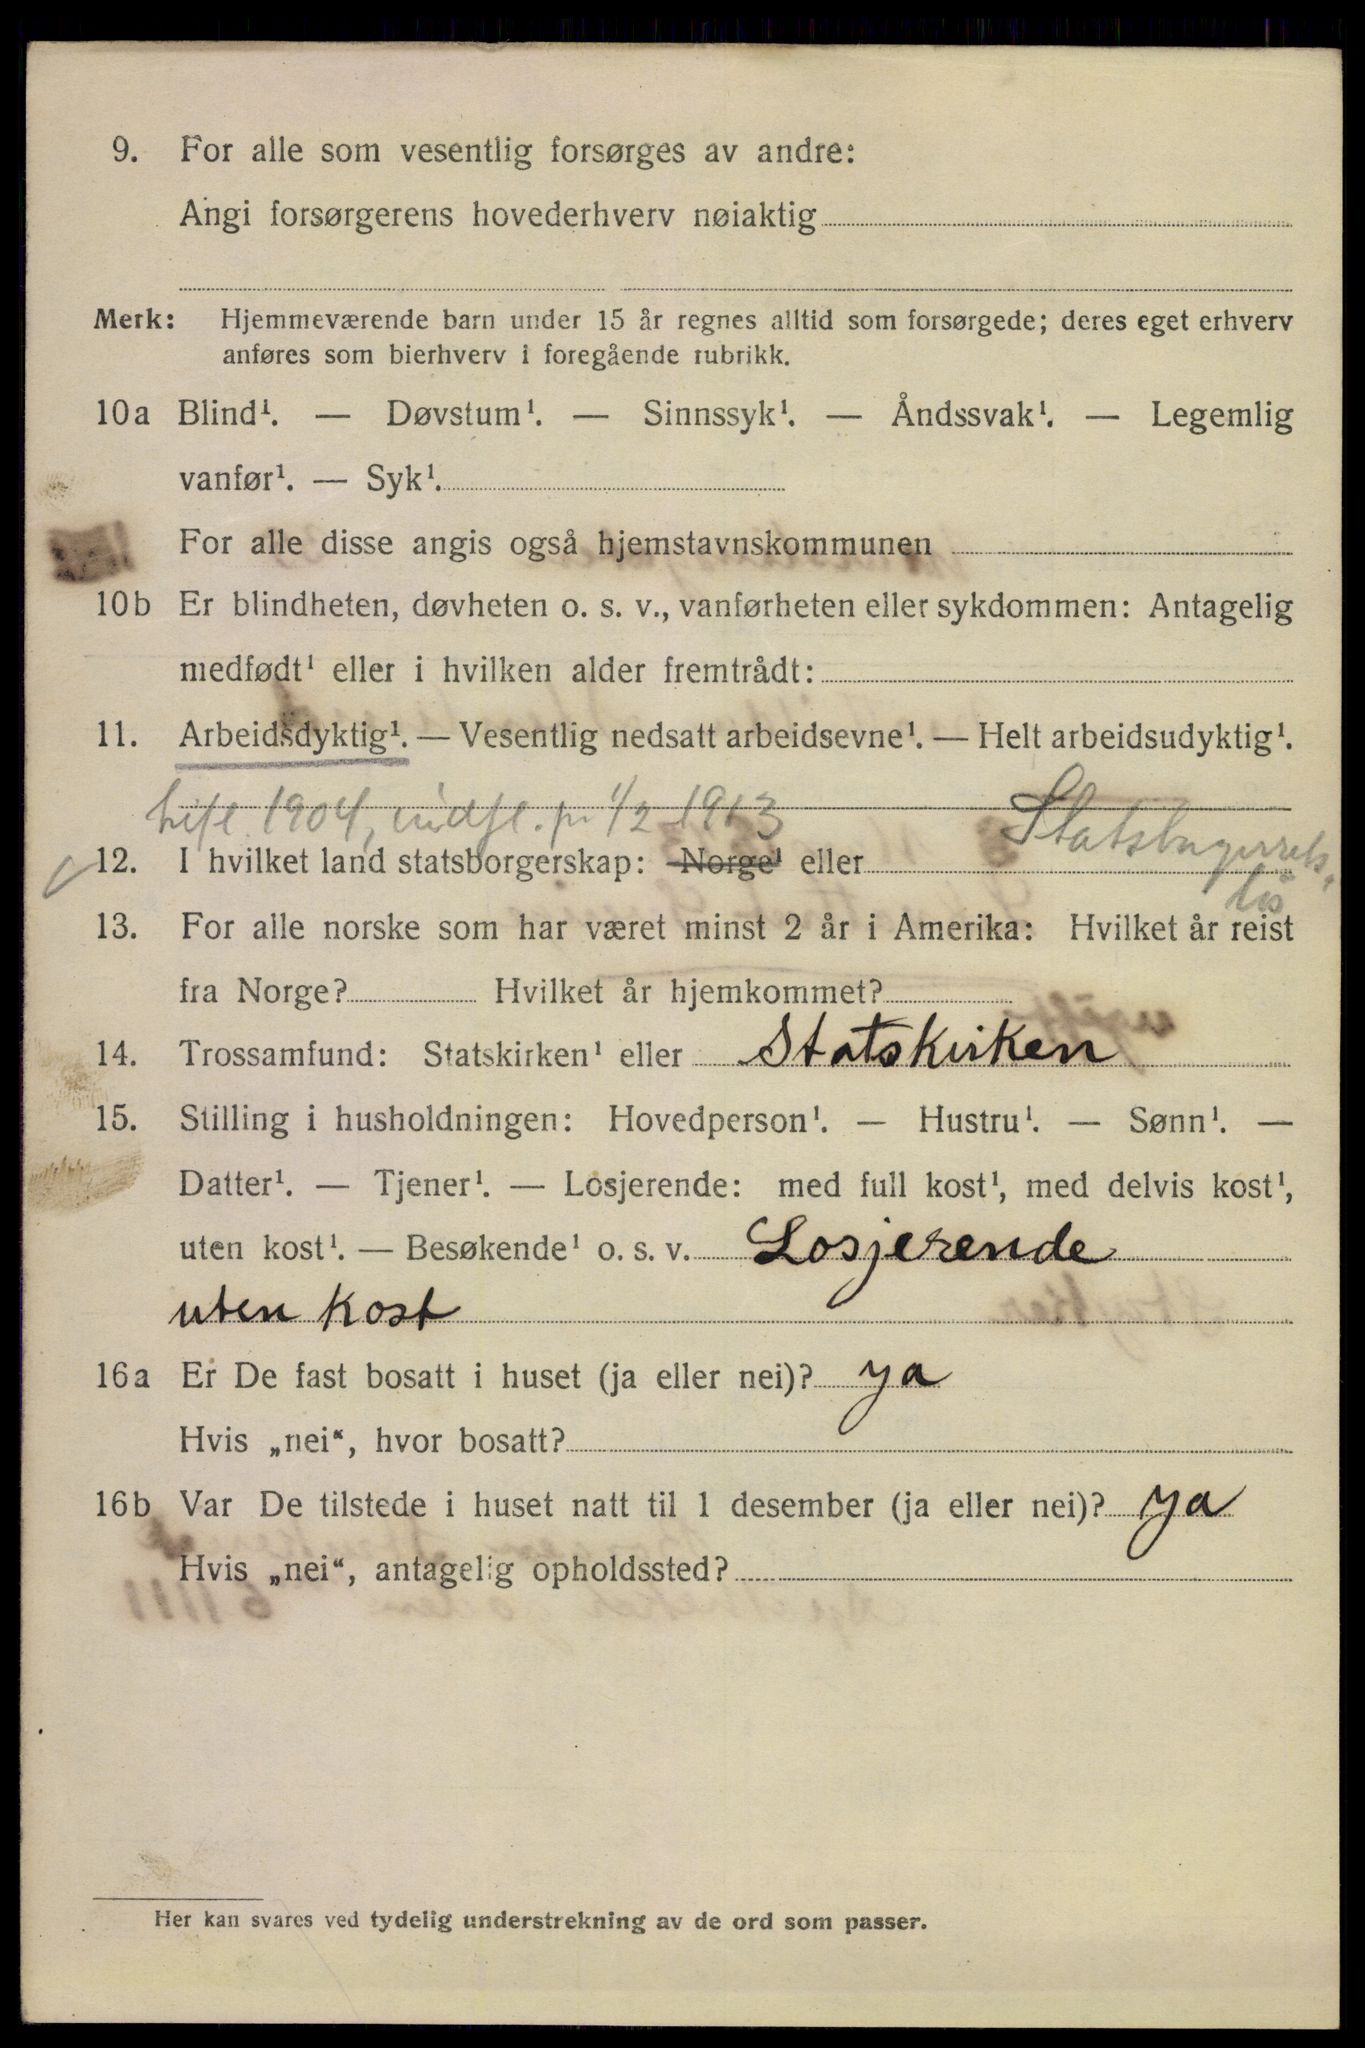 9. For alle som vesentlig forsørges av andre:
Angi forsørgerens hovederhverv nøiaktig
Merk: Hjemmeværende barn under 15 år regnes alltid som forsørgede; deres eget erhverv
anføres som bierhverv i foregående rubrikk.
10a Blind¹. — Døvstum¹. — Sinnssyk¹. — Åndssvak¹. — Legemlig
vanfør¹. — Syk¹.
For alle disse angis også hjemstavnskommunen
10b Er blindheten, døvheten o. s. v., vanførheten eller sykdommen: Antagelig
medfødt¹ eller i hvilken alder fremtrådt:
11. Arbeidsdyktig¹. — Vesentlig nedsatt arbeidsevne¹. — Helt arbeidsudyktig¹.
1904, indfl. 1/2 1913
12. I hvilket land statsborgerskap: Norge¹ eller Statsborgerrets-
løs
13. For alle norske som har været minst 2 år i Amerika: Hvilket år reist
fra Norge? Hvilket år hjemkommet?
14. Trossamfund: Statskirken¹ eller Statskirken
15. Stilling i husholdningen: Hovedperson¹. — Hustru¹. — Sønn¹. —
Datter¹. — Tjener¹. — Losjerende: med full kost¹, med delvis kost¹,
uten kost¹. — Besøkende¹ o. s. v. Losjerende
uten kost
16a Er De fast bosatt i huset (ja eller nei)? ja
Hvis „nei“, hvor bosatt?
16b Var De tilstede i huset natt til 1 desember (ja eller nei)? ja
Hvis „nei“, antagelig opholdssted?
Her kan svares ved tydelig understrekning av de ord som passer.